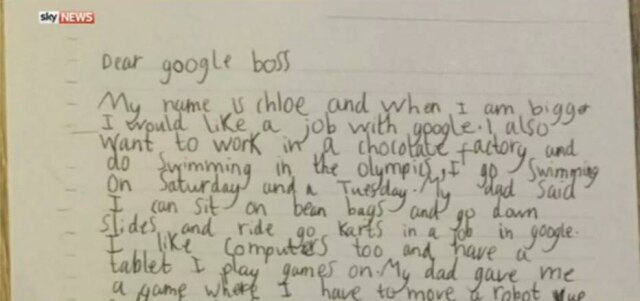 sky NEWS
Dear google boss
My name is chloe and when I am bigger
I would like a job with google. I also
want to work in a chocolate factory and
do swimming in the olympics, I go swimming
on Saturday and a Tuesday. My dad said
I can sit on bean bags and go down
slides and ride go karts in a job in google.
I like computers too and have a
tablet I play games on. My dad gave me
a game where I have to move a robot